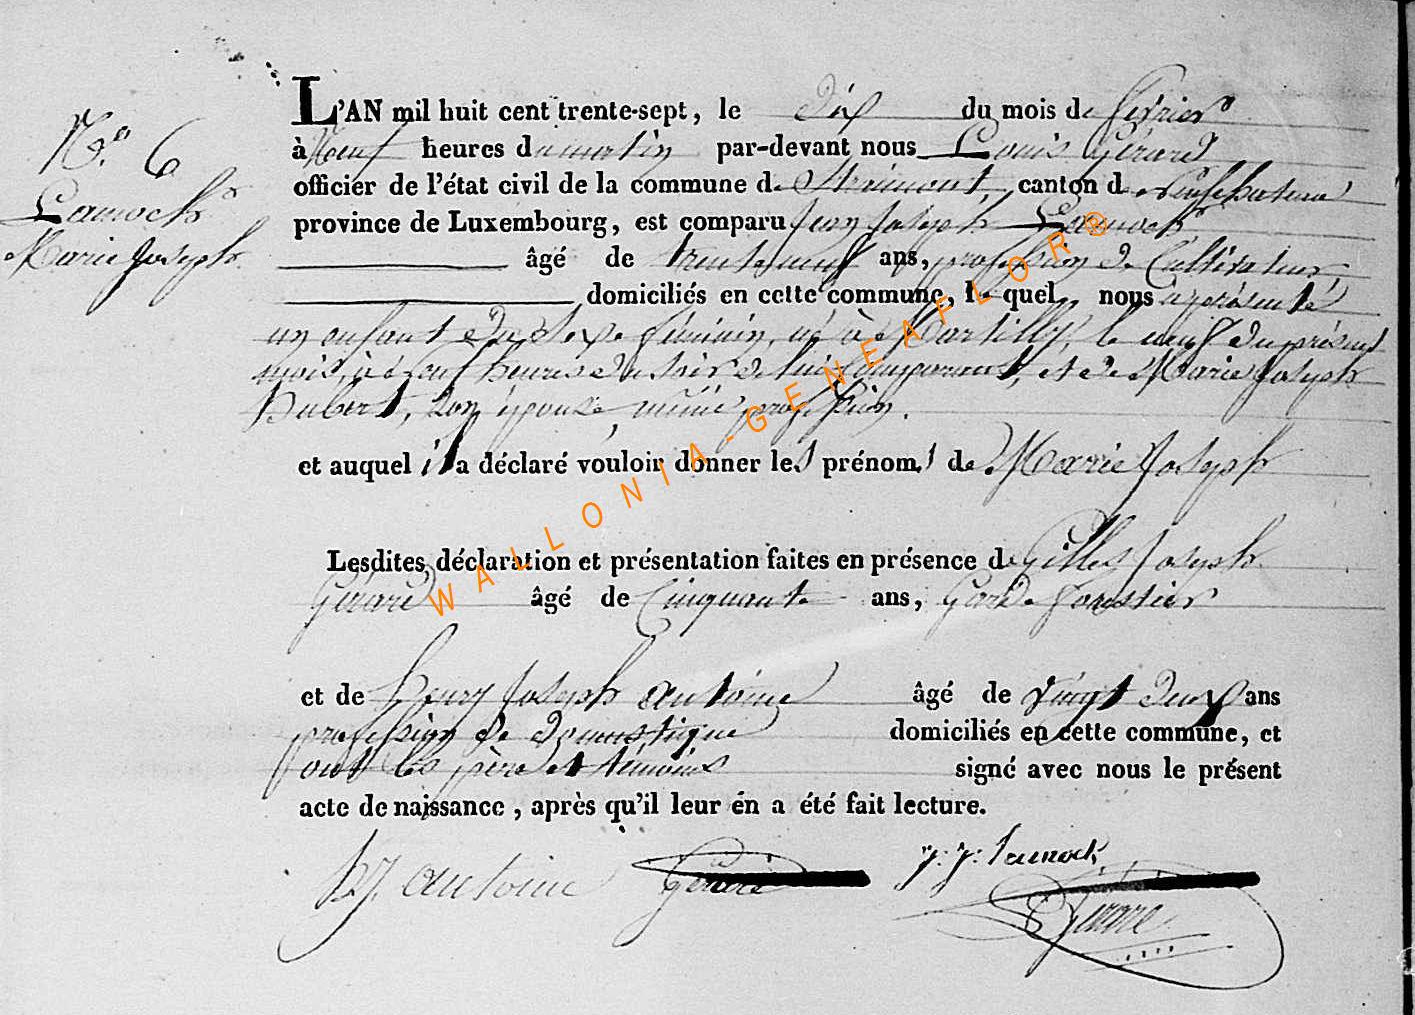 N.° 6
Lamock
Marie Joseph
L'AN mil huit cent trente-sept, le Dix du mois de février
à Neuf heures du matin par-devant nous Louis Gérard
officier de l'état civil de la commune de Straimont, canton de Neufchateau
province de Luxembourg, est comparu Jean Joseph Lamock
âgé de trente neuf ans, profession de Cultivateur
domiciliés en cette commune, le quel nous a présenté
un enfant du Sexe féminin, né à Martilly, le neuf du présent
mois, à Neuf heures du Soir de lui comparant, et de Marie Joseph
Hubert, Son épouse, même profession.
et auquel il a déclaré vouloir donner les prénoms de Marie Joseph
Lesdites déclaration et présentation faites en présence de Gilles Joseph
Gérard âgé de Cinquante ans, Garde forestier
et de henry Joseph antoine âgé de Vingt Deux ans
profession de Domestique domiciliés en cette commune, et
ont les père et témoins signé avec nous le présent
acte de naissance, après qu'il leur en a été fait lecture.
h. J. antoine Gérard J. J. Lamock
L Gérard
WALLONIA-GENEAFLOR®